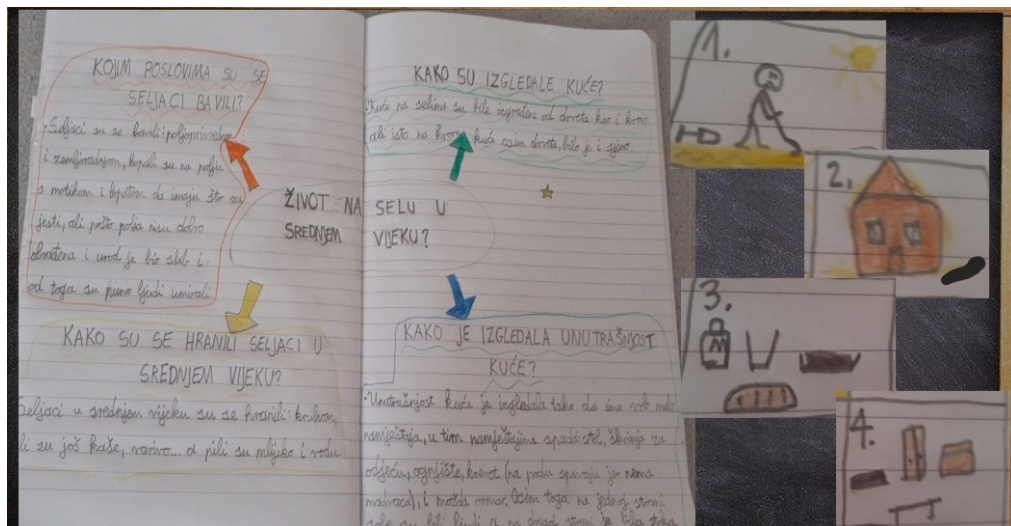 KOJIM POSLOVIMA SU SE
SELJACI BAVILI?
Seljaci su se bavili: poljoprivredom
i zemljoradnjom, kopali su na polju
s motikom i lopatom da imaju što za
jesti, ali pošto polja nisu dobro
obrađena i urod je bio slab i
od toga su ljudi umirali.
KAKO SU IZGLEDALE KUĆE?
Kuće na selima su bile izgrađene od drveta kao i krov,
ali isto na krovu kuće osim drveta, bilo je i sijeno.
ŽIVOT NA SELU U
SREDNJEM VIJEKU?
KAKO SU SE HRANILI SELJACI U
SREDNJEM VIJEKU?
Seljaci u srednjem vijeku su se hranili: kruhom,
su još kaše, varivo... a pili su mlijeko i vodu.
KAKO JE IZGLEDALA UNUTRAŠNJOST
KUĆE?
Unutrašnjost kuće je izgledala tako da ima vrlo malo
namještaja, u tim namještajima spada stol, škrinja za
odjeću, ognjište, krevet (na podu spavaju jer nema
madraca), i možda ormar. Osim toga na jednoj strani
su bili ljudi a na drugoj strani je bila
1.
2.
3.
M
4.